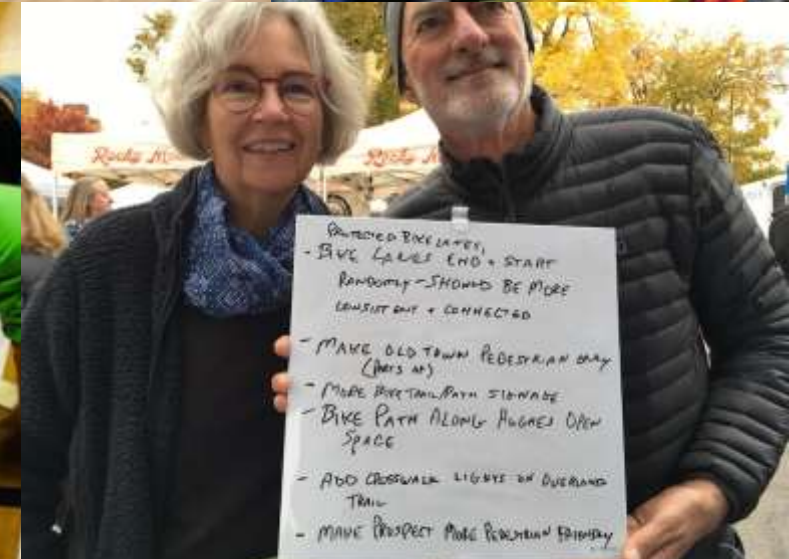 Rocky Mo
Rocky Mo
PROTECTED BIKE LANES,
- BIKE LANES END + START
RANDOMLY - SHOULD BE MORE
CONSISTENT + CONNECTED
- MAKE OLD TOWN PEDESTRIAN ONLY
(PARTS OF)
- MORE BIKE TRAIL/PATH SIGNAGE
- BIKE PATH ALONG HUGHES OPEN
SPACE
- ADD CROSSWALK LIGHTS ON OVERLAND
TRAIL
- MAKE PROSPECT MORE PEDESTRIAN FRIENDLY